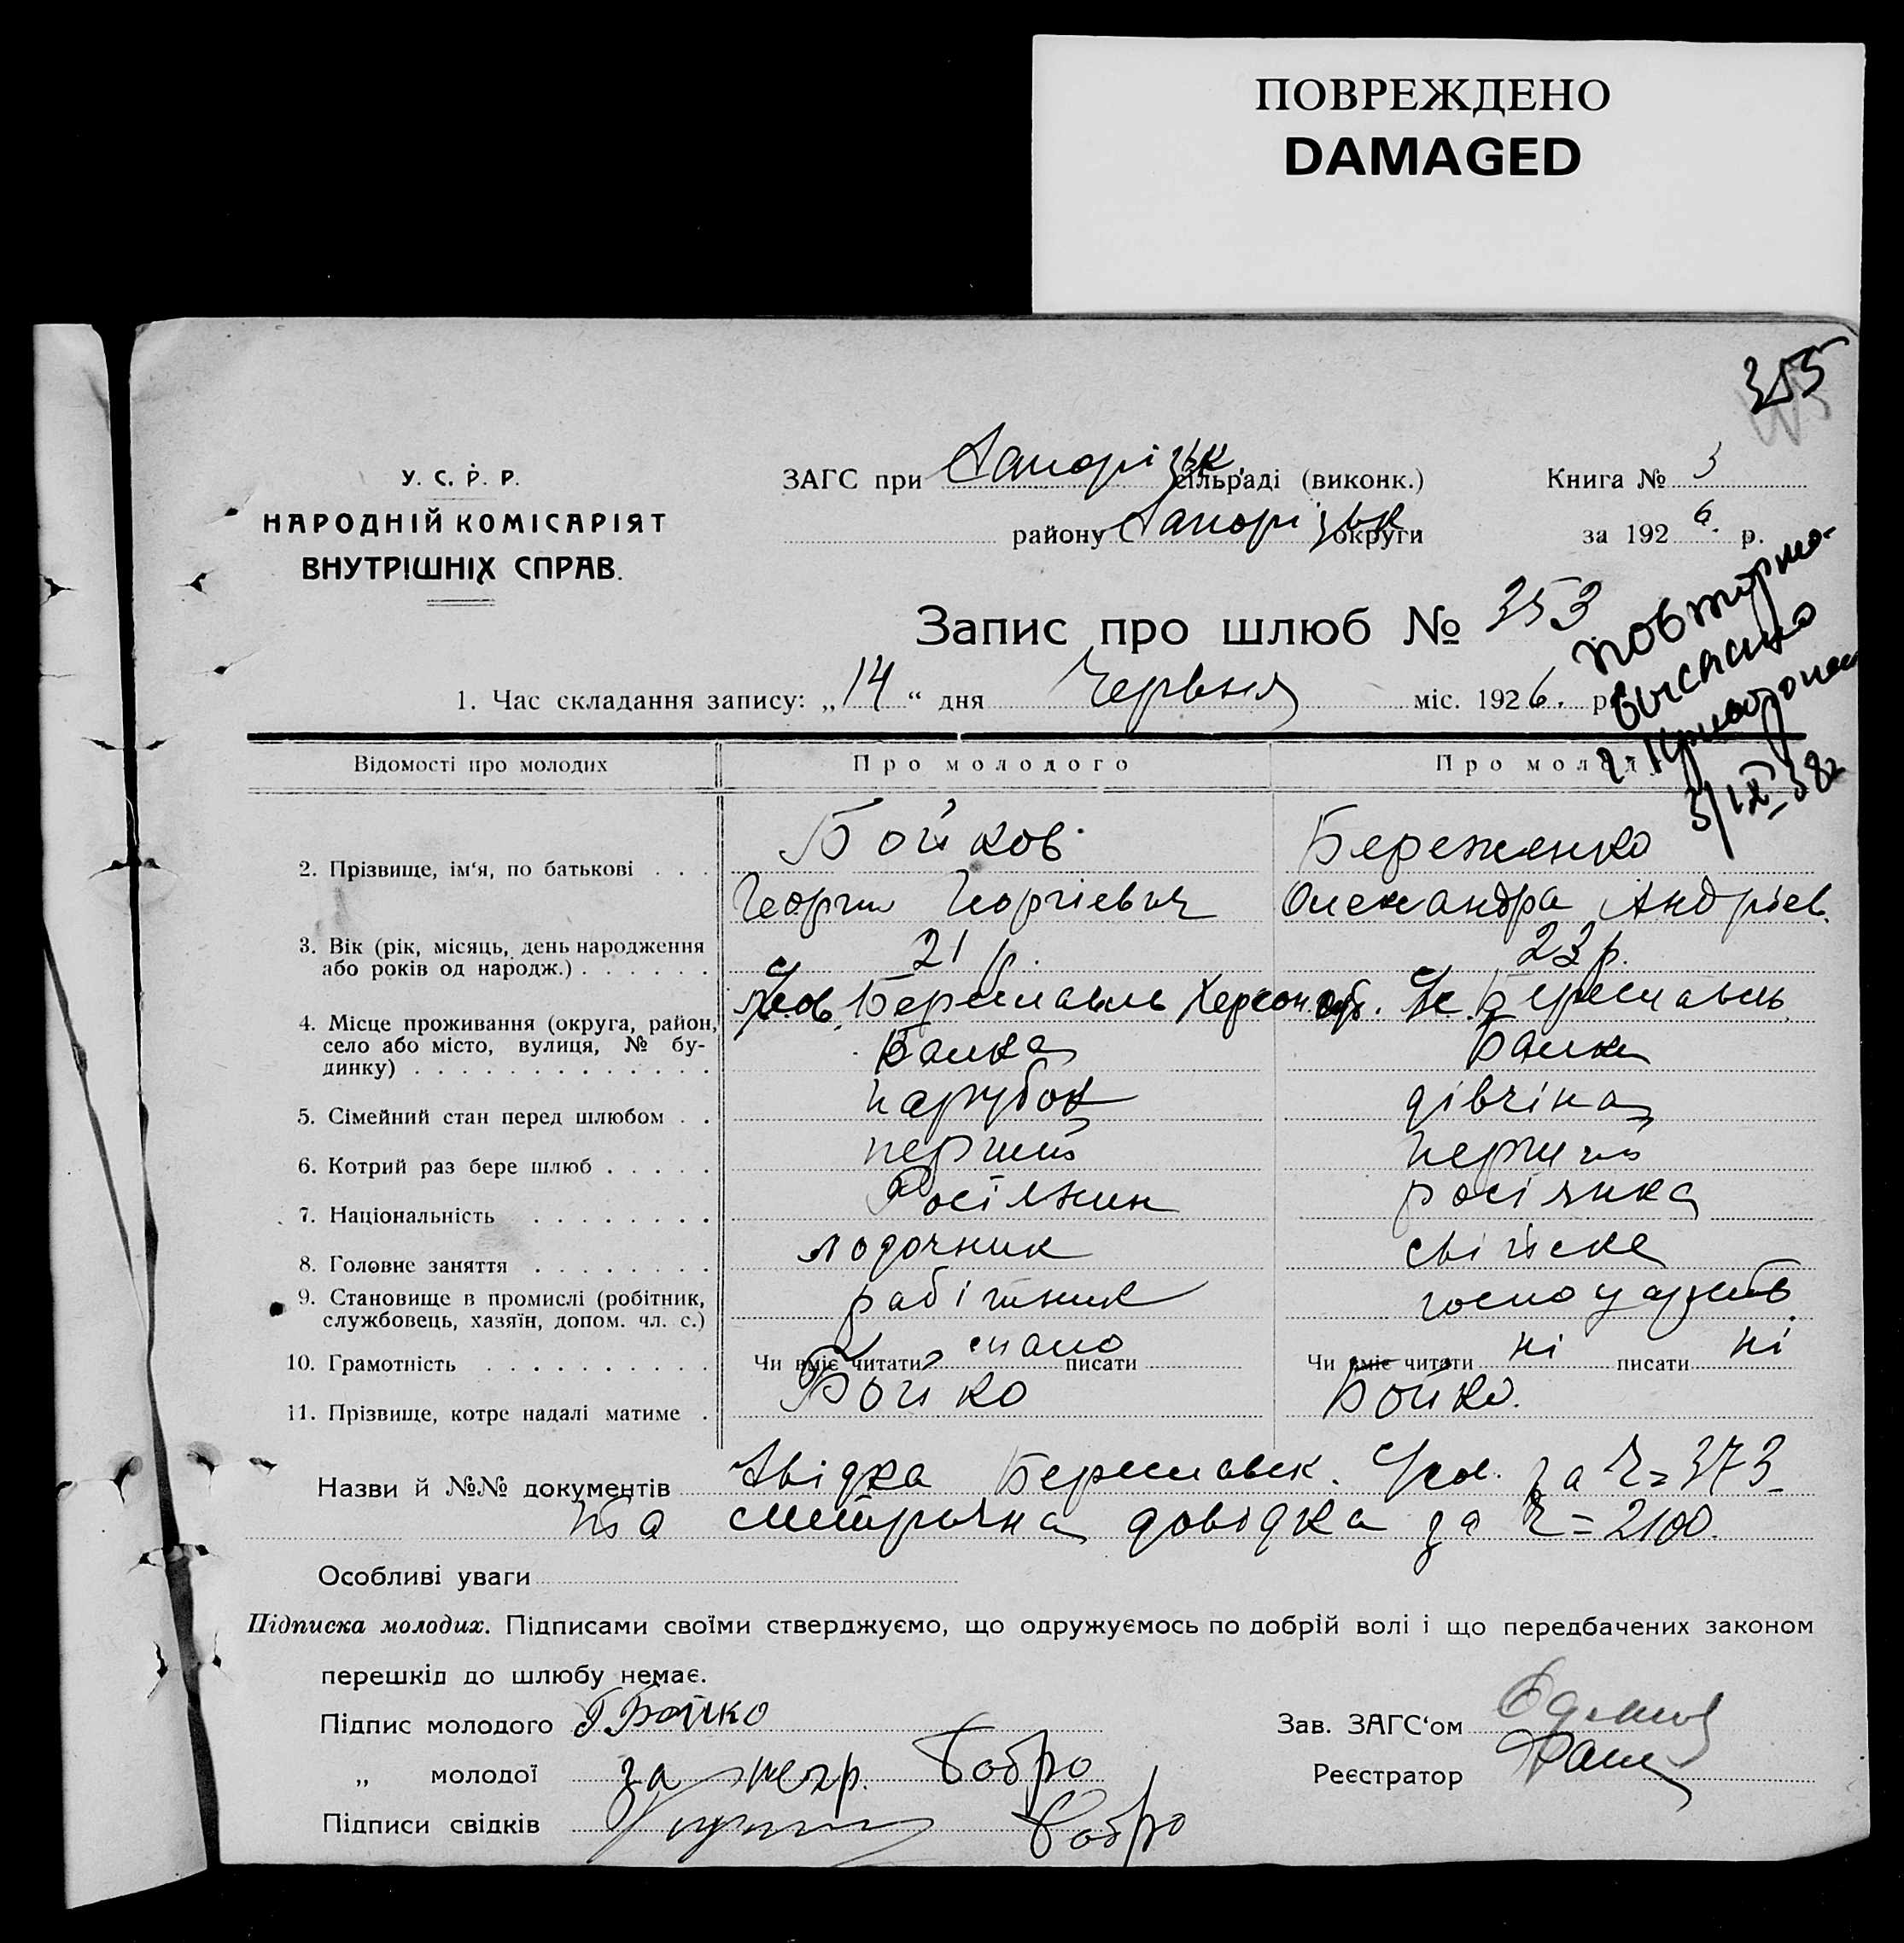 ПОВРЕЖДЕНО
DAMAGED
355
У. С. Р. Р.
НАРОДНІЙ КОМІСАРІЯТ
ВНУТРІШНІХ СПРАВ.
ЗАГС при Запорізьк. сільраді (виконк.)
району Запорізьк округи
Книга № 3
за 1926. р.
Запис про шлюб № 353
повторно
высаино
3/IX-38г
1. Час складання запису: „14“ дня Червня міс. 1926. р
Відомості про молодих Про молодого Про молод
2. Прізвище, ім‘я, по батькові . . . Бойков Береженко
Георгий Георгіевич Олександра Андріев.
3. Вік (рік, місяць, день народження
або років од народж.) . . . . . . 21 р. 23 р.
4. Місце проживання (округа, район,
село або місто, вулиця, № бу-
динку) . . . . . . . . . . . . . Бериславль Херсон. окр. Бериславль
Балка Балки
5. Сімейний стан перед шлюбом . . парубок дівчіна
6. Котрий раз бере шлюб . . . . . перший перший
7. Національність . . . . . . . . Росіянин росіянка
8. Головне заняття . . . . . . . . лодочник свійске
9. Становище в промислі (робітник,
службовець, хазяїн, допом. чл. с.) рабітник господарств.
10. Грамотність . . . . . . . . . . Чи вміє читати мало писати Чи вміє читати ні писати ні
11. Прізвище, котре надалі матиме . Бойко Бойко.
Назви й №№ документів Звідка Бериславск. за № 373
та метрична довідка за № 2100.
Особливі уваги
Підписка молодих. Підписами своїми стверджуємо, що одружуємось по добрій волі і що передбачених законом
перешкід до шлюбу немає.
Підпис молодого Г Бойко
Зав. ЗАГС‘ом
„ молодої за негр. Бобро
Реєстратор
Підписи свідків Бобро